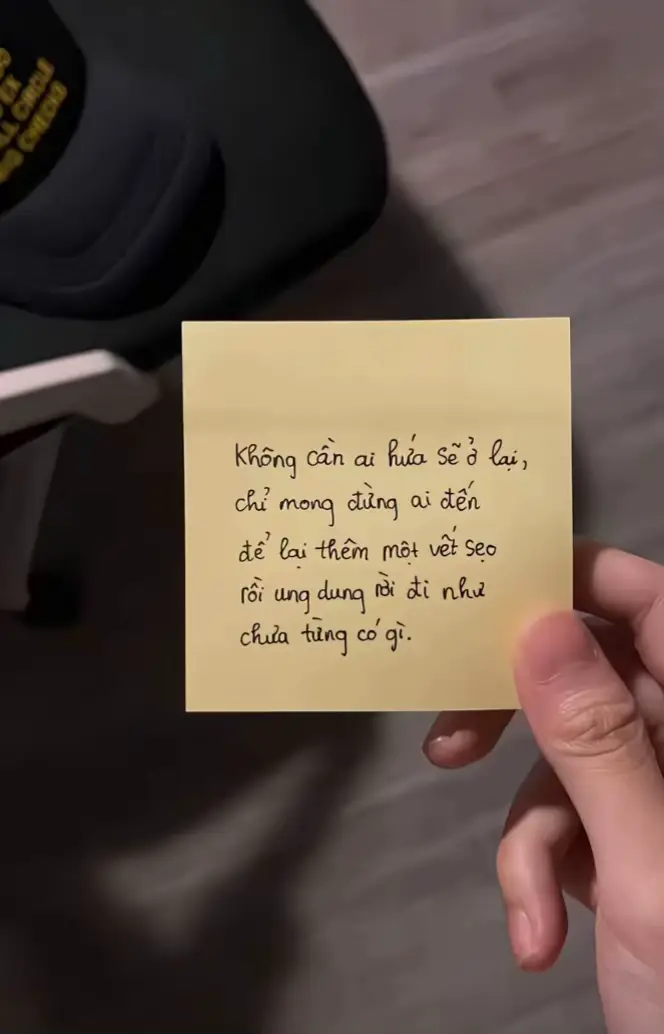 LL CIRCLE
Không cần ai hứa sẽ ở lại,
chỉ mong đừng ai đến
để lại thêm một vết sẹo
rồi ung dung rời đi như
chưa từng có gì.